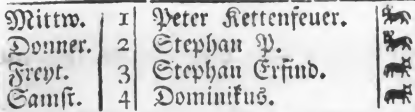 Mittw. 1 Peter Kettenfeuer.
Donner. 2 Stephan P.
Freyt. 3 Stephan Erfind.
Samst. 4 Dominikus.